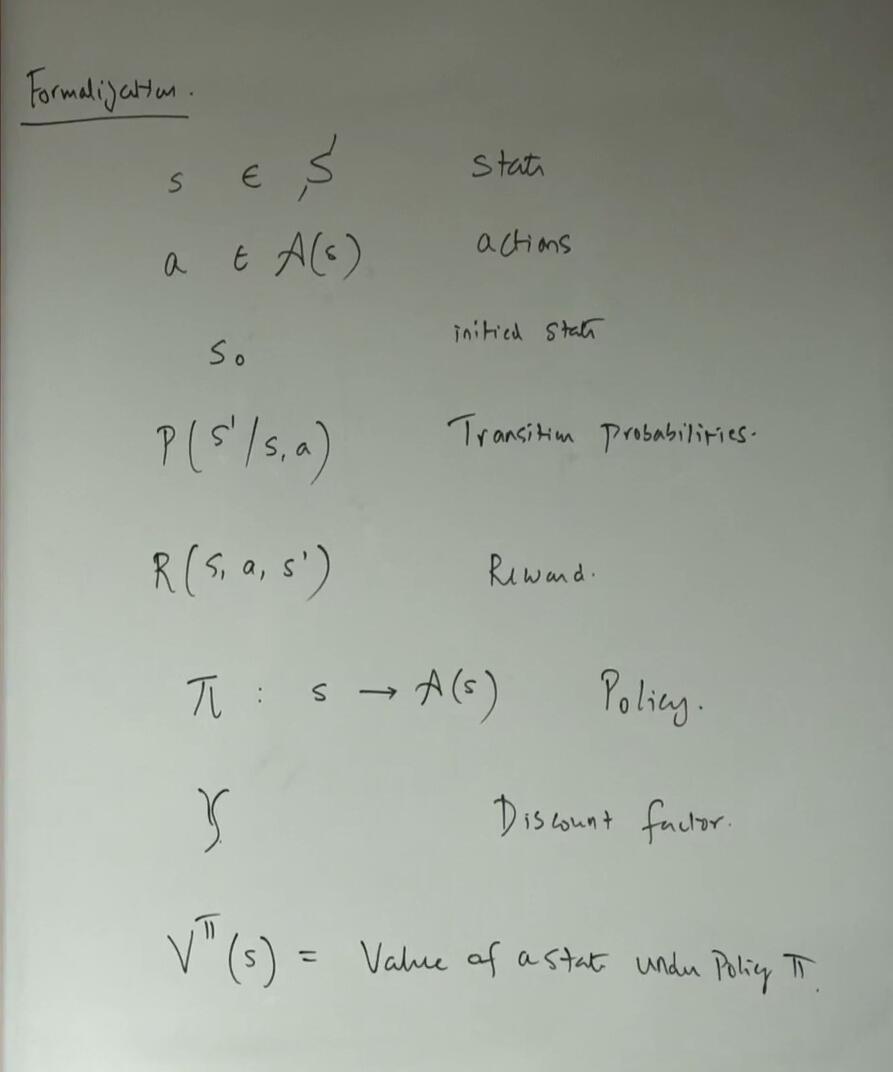 Formalization.
s ∈ S state
a ∈ A(s) actions
s₀ initial state
P(s'/s, a) Transition Probabilities.
R(s, a, s') Reward.
π : s → A(s) Policy.
γ Discount factor.
V^π(s) = Value of a state under Policy π.